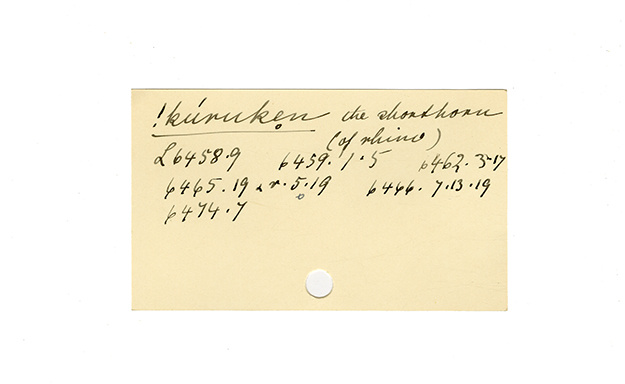 !kúrukẹn the shorthorn
(of rhino)
L6458.9 6459.1.5 6462.3.17
6465.19 & r.5.19 6466.7.13.19
6474.7